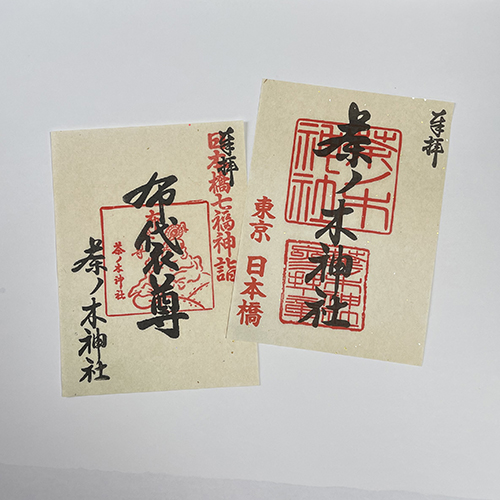 奉拝
日本橋七福神詣
布袋尊
茶ノ木神社
茶ノ木神社
奉拝
茶ノ木神社
茶ノ木神社
東京 日本橋